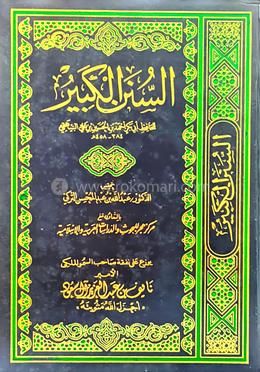 السنن الكبير
للحافظ أبي بكر أحمد بن الحسين بن علي البيهقي
٣٨٤ - ٤٥٨هـ
تحقيق
الدكتور عبد الله بن عبد المحسن التركي
بالتعاون مع
مركز هجر للبحوث والدراسات العربية والإسلامية
الأمير
السنن الكبير
rokomari